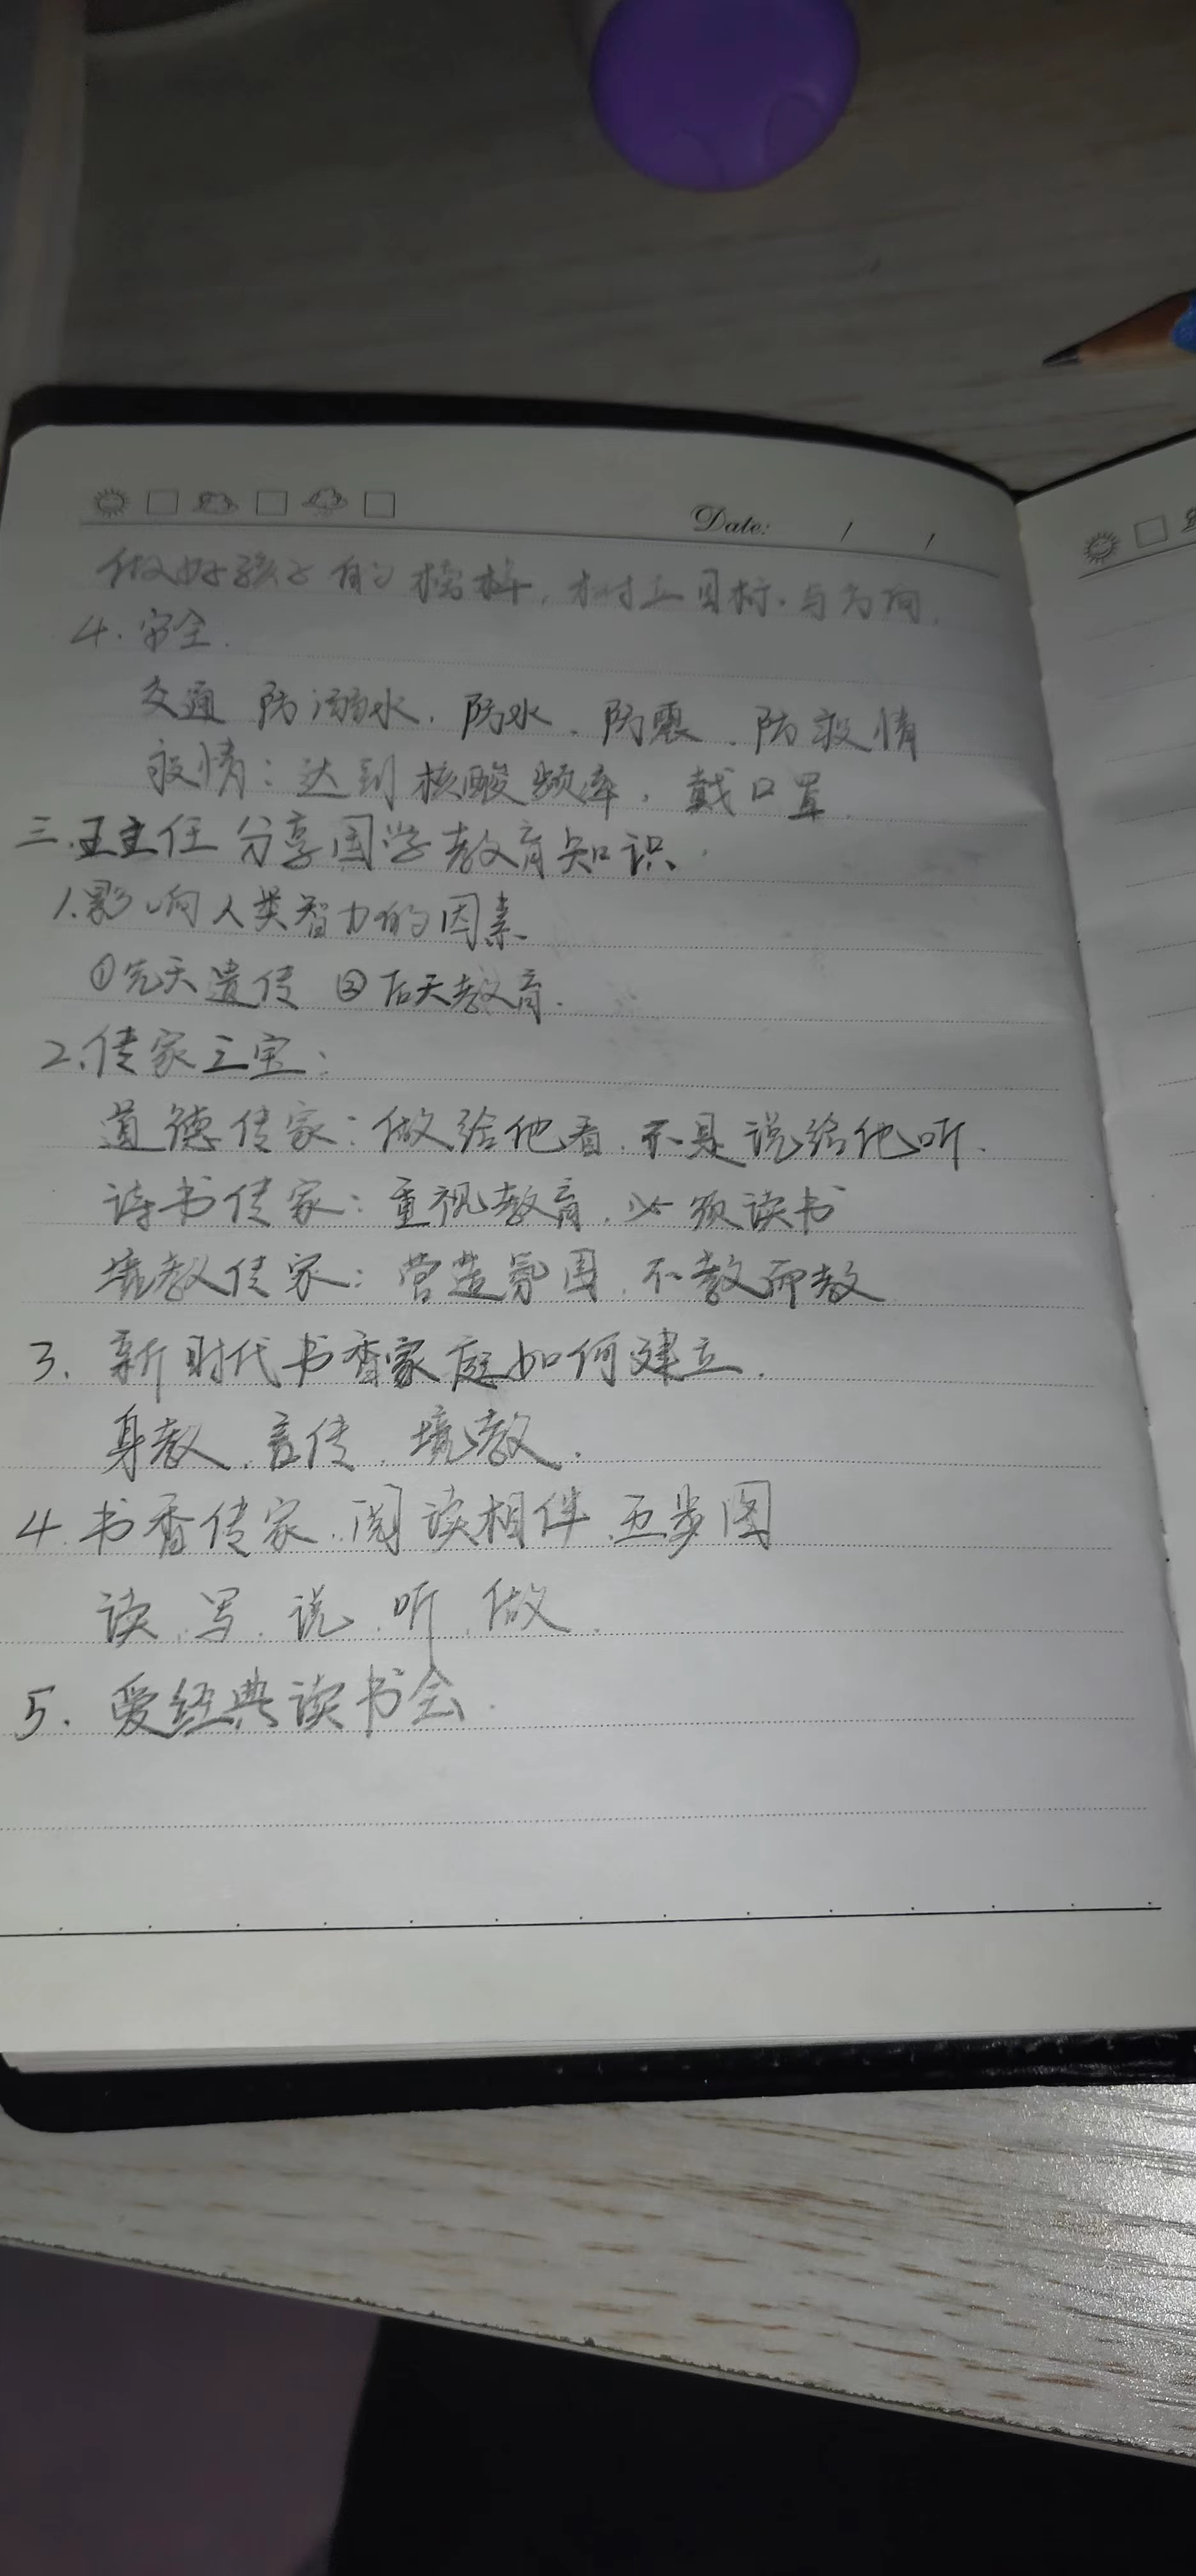 Date: / /
做好孩子的榜样,树立目标.与方向.
4.安全.
交通 防溺水.防水.防震.防疫情
疫情:达到核酸频率,戴口罩.
三.王主任分享国学教育知识.
1.影响人类智力的因素
①先天遗传 ②后天教育.
2.传家三宝:
道德传家:做给他看.不是说给他听.
诗书传家:重视教育.必须读书
境教传家:营造氛围.不教而教
3.新时代书香家庭如何建立.
身教.言传.境教.
4.书香传家.阅读相伴.五步图
读.写.说.听.做.
5.爱经典读书会.